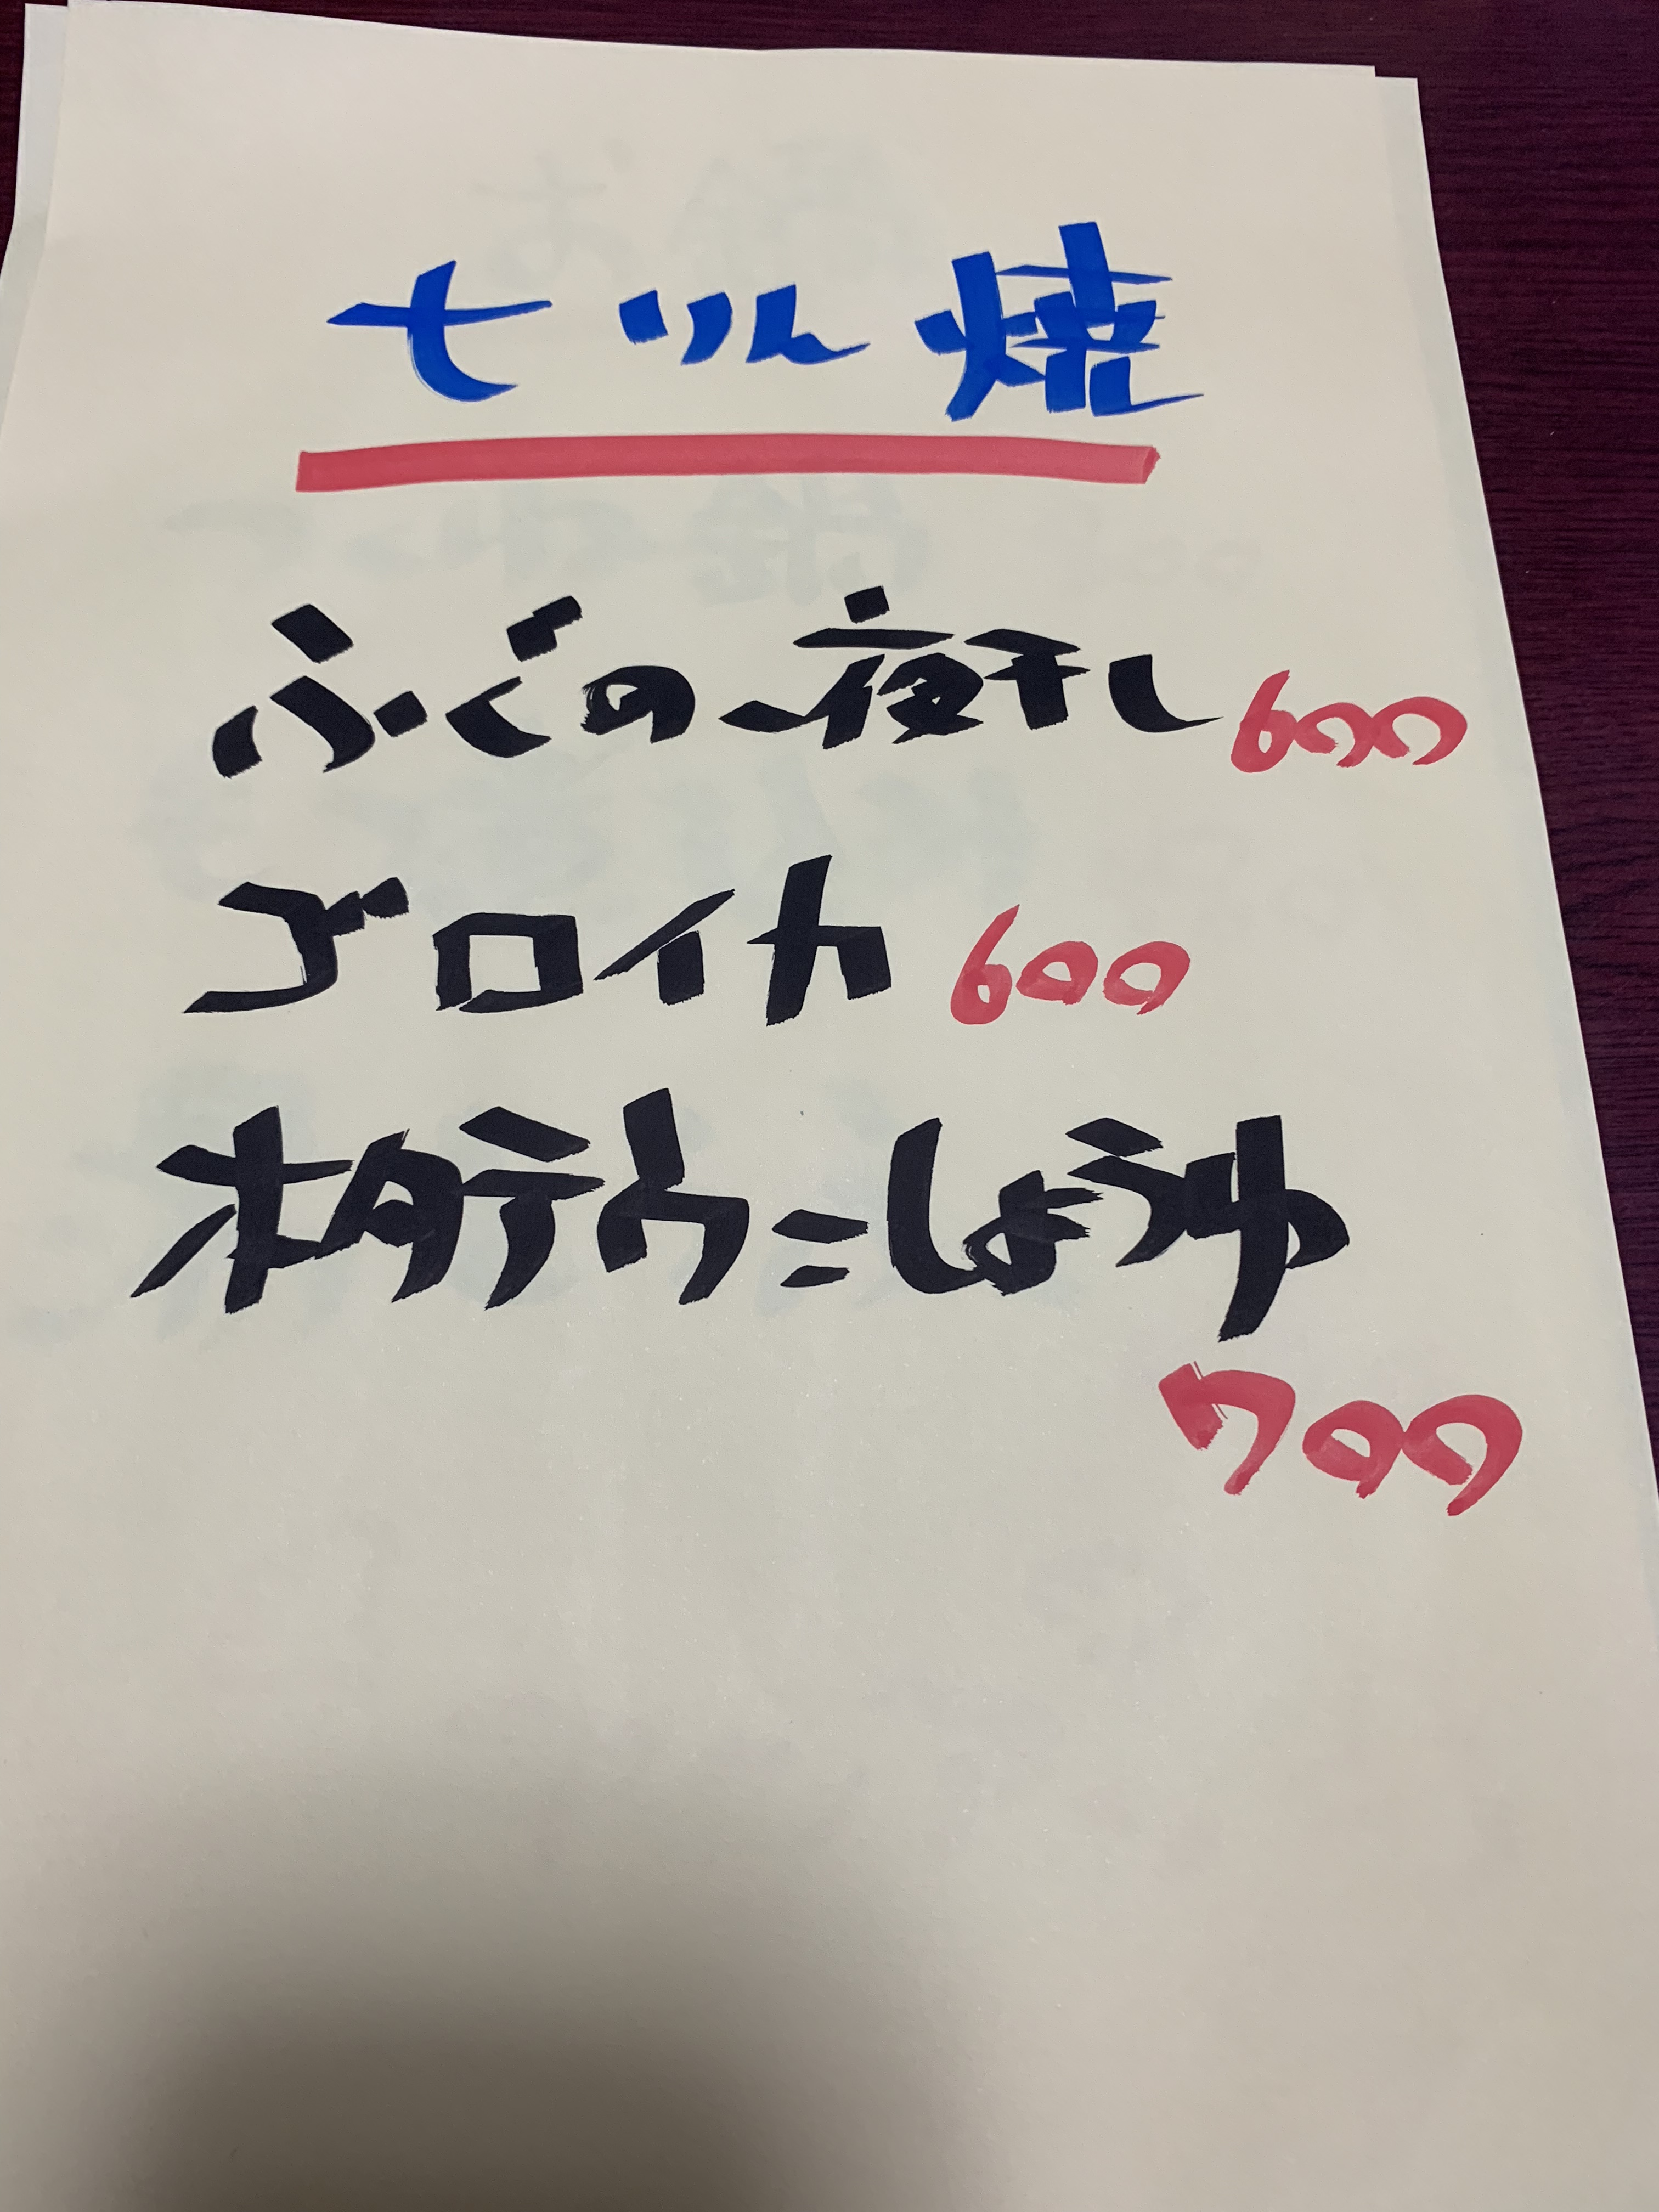 七りん焼
ふぐの一夜干し 600
ゴロイカ 600
ホタテウニしょうゆ
700